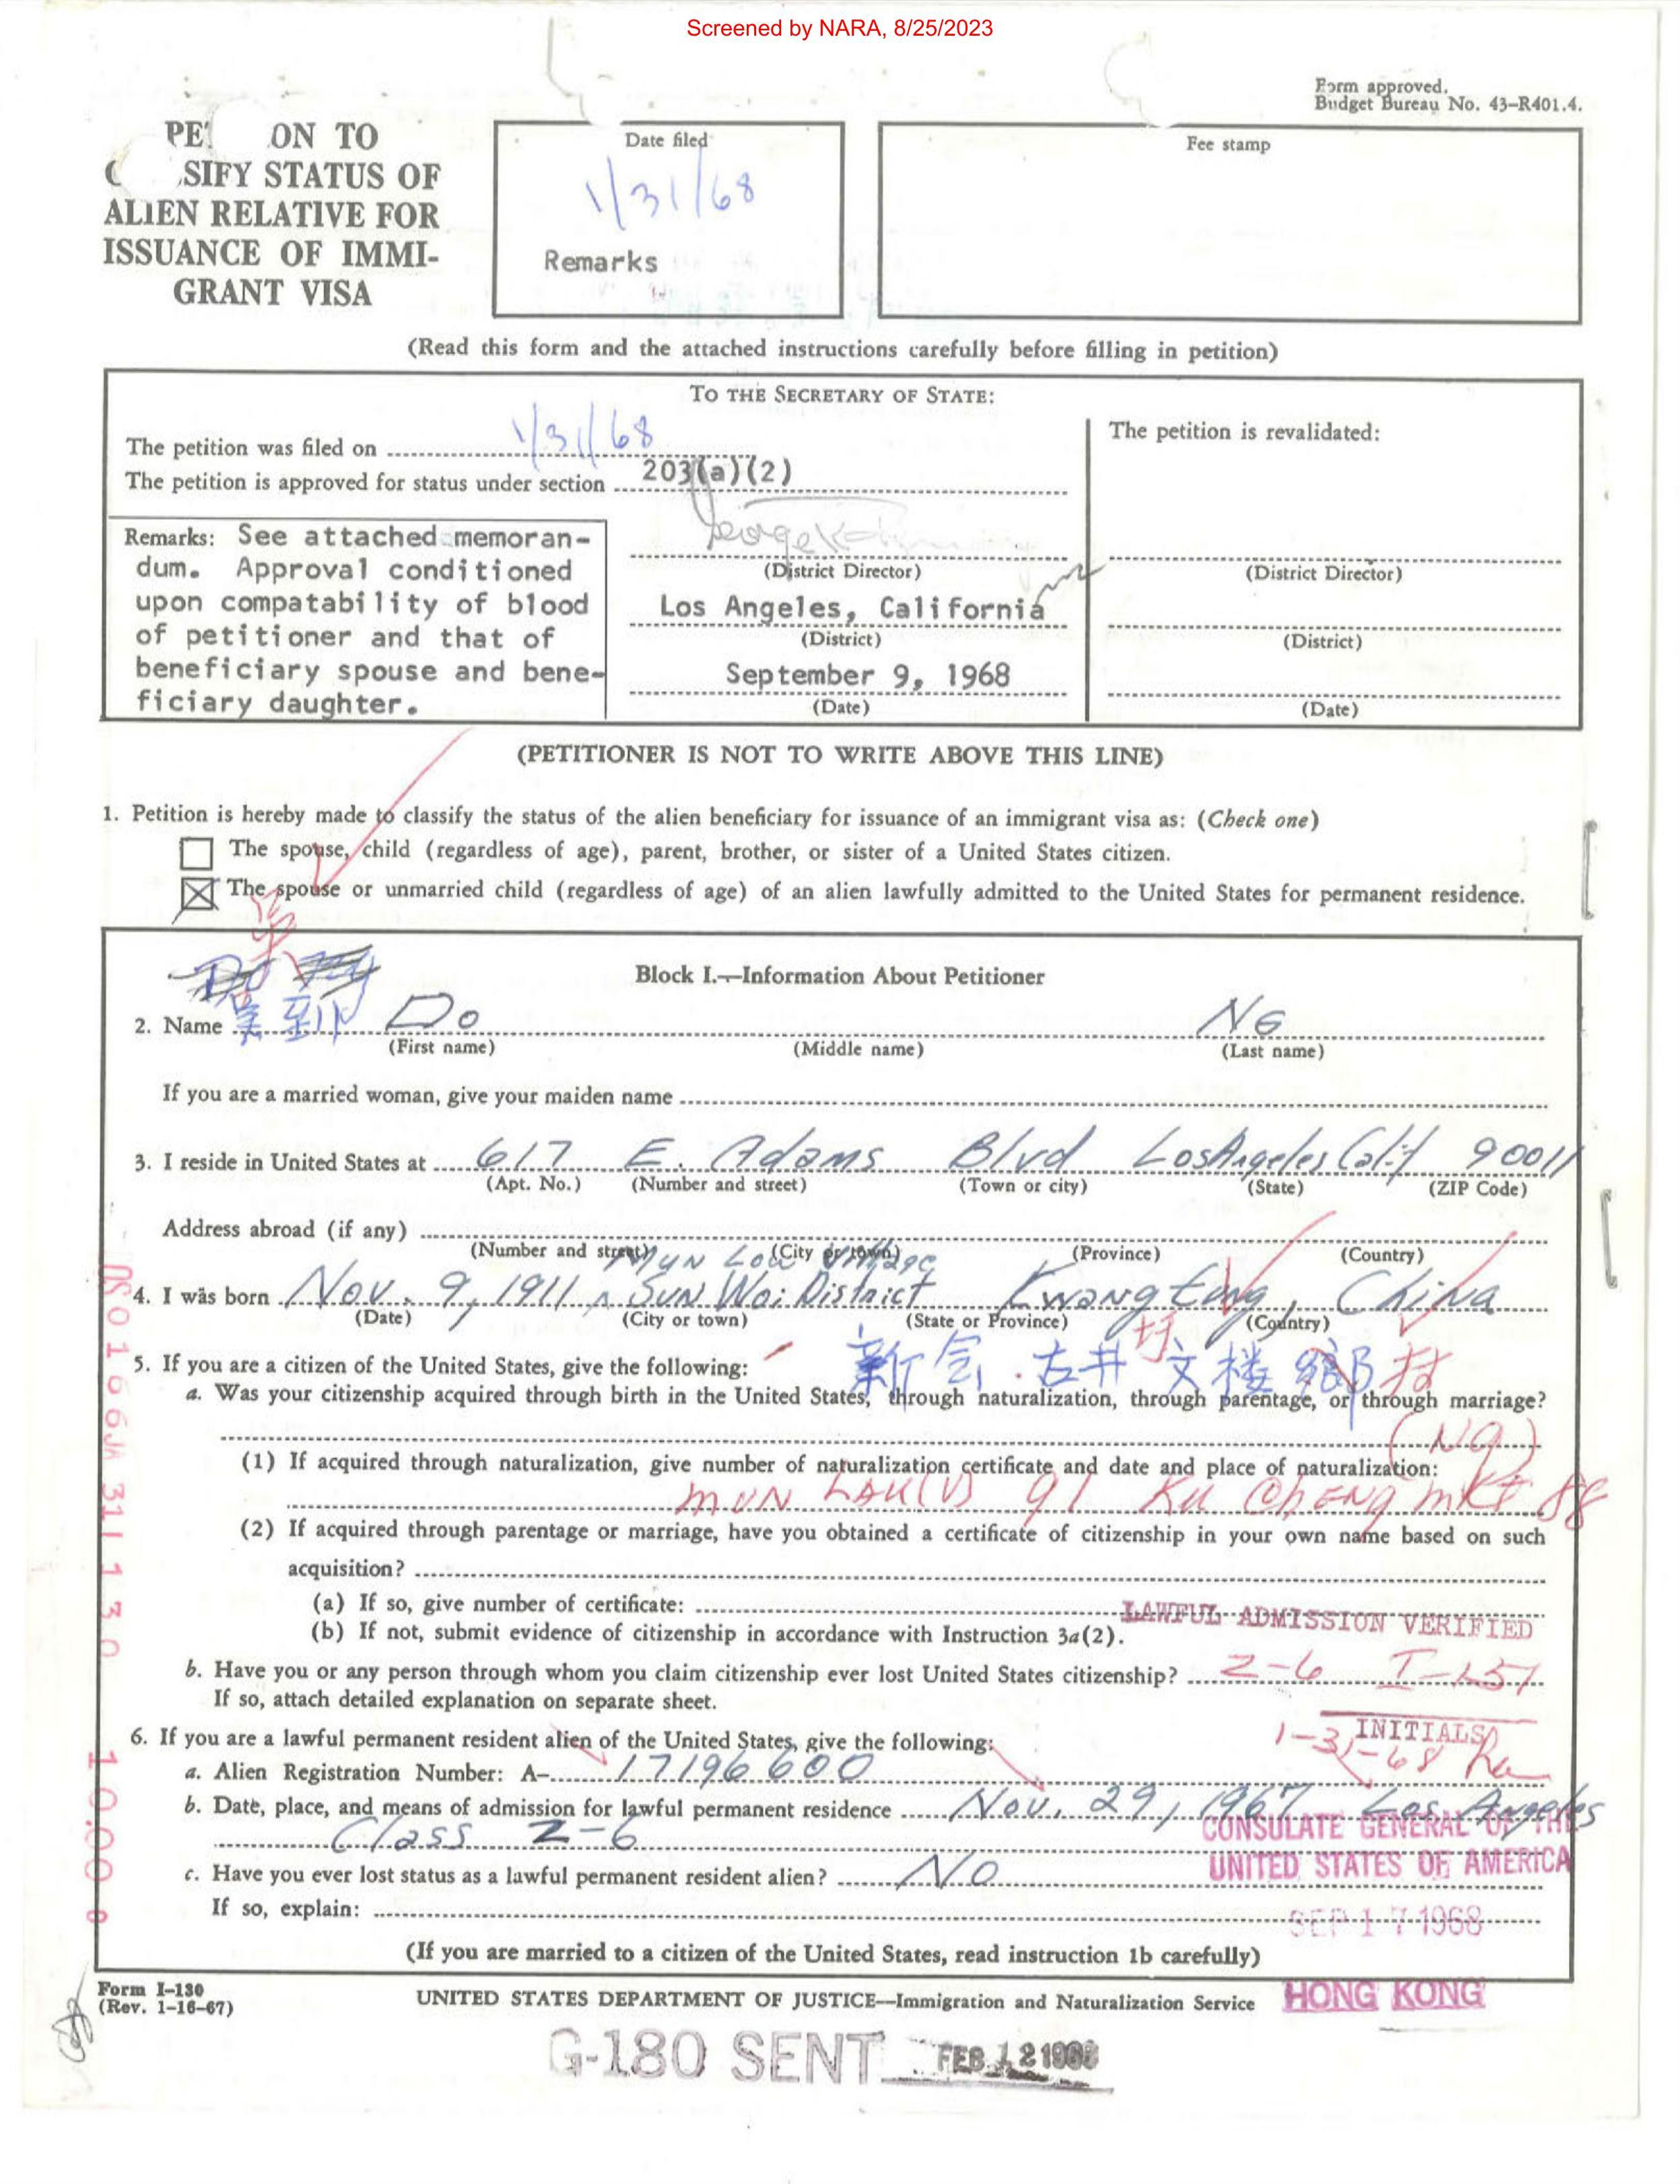 Screened by NARA, 8/25/2023
Form approved.
Budget Bureau No. 43-R401.4.
ON TO
SIFY STATUS OF
ALIEN RELATIVE FOR
ISSUANCE OF IMMI-
GRANT VISA
Date filed
1/31/68
Remarks
Fee stamp
(Read this form and the attached instructions carefully before filling in petition)
TO THE SECRETARY OF STATE:
The petition was filed on 1/31/68
The petition is approved for status under section 203(a)(2)
Remarks: See attached memoran-
dum. Approval conditioned
upon compatability of blood
of petitioner and that of
beneficiary spouse and bene-
ficiary daughter.
(District Director)
Los Angeles, California
(District)
September 9, 1968
(Date)
The petition is revalidated:
(District Director)
(District)
(Date)
(PETITIONER IS NOT TO WRITE ABOVE THIS LINE)
1. Petition is hereby made to classify the status of the alien beneficiary for issuance of an immigrant visa as: (Check one)
The spouse, child (regardless of age), parent, brother, or sister of a United States citizen.
The spouse or unmarried child (regardless of age) of an alien lawfully admitted to the United States for permanent residence.
Block I.—Information About Petitioner
2. Name Do NG
(First name) (Middle name) (Last name)
If you are a married woman, give your maiden name
3. I reside in United States at 617 E. Adams Blvd Los Angeles Calif 90011
(Apt. No.) (Number and street) (Town or city) (State) (ZIP Code)
Address abroad (if any)
(Number and street) (City or town) (Province) (Country)
Mun Low Village
4. I was born Nov. 9, 1911 Sun Woi District Kwangtung, China
(Date) (City or town) (State or Province) (Country)
新会.古井 文楼鄉 村
5. If you are a citizen of the United States, give the following:
a. Was your citizenship acquired through birth in the United States, through naturalization, through parentage, or through marriage?
(Ng)
(1) If acquired through naturalization, give number of naturalization certificate and date and place of naturalization:
MUN LAU(V) 91 KU CHENG MKT 88
(2) If acquired through parentage or marriage, have you obtained a certificate of citizenship in your own name based on such
acquisition?
(a) If so, give number of certificate:
LAWFUL ADMISSION VERIFIED
(b) If not, submit evidence of citizenship in accordance with Instruction 3a(2).
b. Have you or any person through whom you claim citizenship ever lost United States citizenship? Z-6 I-151
If so, attach detailed explanation on separate sheet.
INITIALS
1-31-68
6. If you are a lawful permanent resident alien of the United States, give the following:
a. Alien Registration Number: A- 17196600
b. Date, place, and means of admission for lawful permanent residence Nov. 29, 1967 Los Angeles
Class Z-6
CONSULATE GENERAL OF THE
UNITED STATES OF AMERICA
c. Have you ever lost status as a lawful permanent resident alien? NO
If so, explain:
SEP 17 1968
(If you are married to a citizen of the United States, read instruction 1b carefully)
Form I-130
(Rev. 1-16-67)
UNITED STATES DEPARTMENT OF JUSTICE—Immigration and Naturalization Service
HONG KONG
G-180 SENT FEB 12 1968